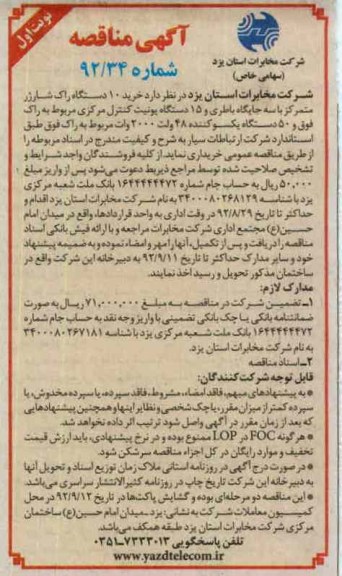 نوبت اول
آگهی مناقصه
شماره ۹۲/۳۴
شرکت مخابرات استان یزد
(سهامی خاص)
شرکت مخابرات استان یزد در نظر دارد خرید ۱۰ دستگاه راک شارژر
متمرکز با سه جایگاه باطری و ۱۵ دستگاه یونیت کنترل مرکزی مربوط به راک
فوق و ۵۰ دستگاه یکسو کننده ۴۸ ولت ۲۰۰۰ وات مربوط به راک فوق طبق
استاندارد شرکت ارتباطات سیار به شرح و کیفیت مندرج در اسناد مربوطه را
از طریق مناقصه عمومی خریداری نماید. از کلیه فروشندگان واجد شرایط و
تشخیص صلاحیت شده توسط مراجع ذیربط دعوت می‌شود پس از واریز مبلغ
۵۰،۰۰۰ ریال به حساب جام شماره ۱۶۴۴۴۴۴۴۷۲ بانک ملت شعبه مرکزی
یزد با شناسه ۳۴۰۰۰۸۰۲۶۸۱۲۹ به نام شرکت مخابرات استان یزد اقدام و
حداکثر تا تاریخ ۹۲/۸/۲۹ در وقت اداری به واحد قراردادها، واقع در میدان امام
حسین(ع) مجتمع اداری شرکت مخابرات مراجعه و با ارائه فیش بانکی اسناد
مناقصه را دریافت و پس از تکمیل، آنها را مهر و امضاء نموده و به ضمیمه پیشنهاد
خود و سایر مدارک حداکثر تا تاریخ ۹۲/۹/۱۱ به دبیرخانه این شرکت واقع در
ساختمان مذکور تحویل و رسید اخذ نمایند.
مدارک لازم:
۱ـ تضمین شرکت در مناقصه به مبلغ ۷۱،۰۰۰،۰۰۰ ریال به صورت
ضمانتنامه بانکی یا چک بانکی تضمینی یا واریز وجه نقد به حساب جام شماره
۱۶۴۴۴۴۴۴۷۲ بانک ملت شعبه مرکزی یزد با شناسه ۳۴۰۰۰۸۰۲۶۷۱۸۱
به نام شرکت مخابرات استان یزد.
۲ـ اسناد مناقصه
قابل توجه شرکت کنندگان:
* به پیشنهادهای مبهم، فاقد امضاء، مشروط، فاقد سپرده، یا سپرده مخدوش، یا
سپرده کمتر از میزان مقرر، یا چک شخصی و نظایر اینها و همچنین پیشنهادهایی
که بعد از زمان مقرر در آگهی واصل شود ترتیب اثر داده نخواهد شد.
* هرگونه FOC در LOP ممنوع بوده و در نرخ پیشنهادی، باید ارزش قیمت
تخفیف و موارد رایگان در کل اجزاء مناقصه سرشکن شود.
* در صورت درج آگهی در روزنامه استانی ملاک زمان توزیع اسناد و تحویل آنها
به دبیرخانه این شرکت تاریخ چاپ در روزنامه کثیرالانتشار سراسری می‌باشد.
* این مناقصه دو مرحله‌ای بوده و گشایش پاکت‌ها در تاریخ ۹۲/۹/۱۲ در محل
کمیسیون معاملات شرکت به نشانی: یزد ـ میدان امام حسین(ع) ساختمان
مرکزی شرکت مخابرات استان یزد طبقه همکف می‌باشد.
تلفن پاسخگویی ۷۲۳۳۰۱۳ـ۰۳۵۱
www.yazdtelecom.ir